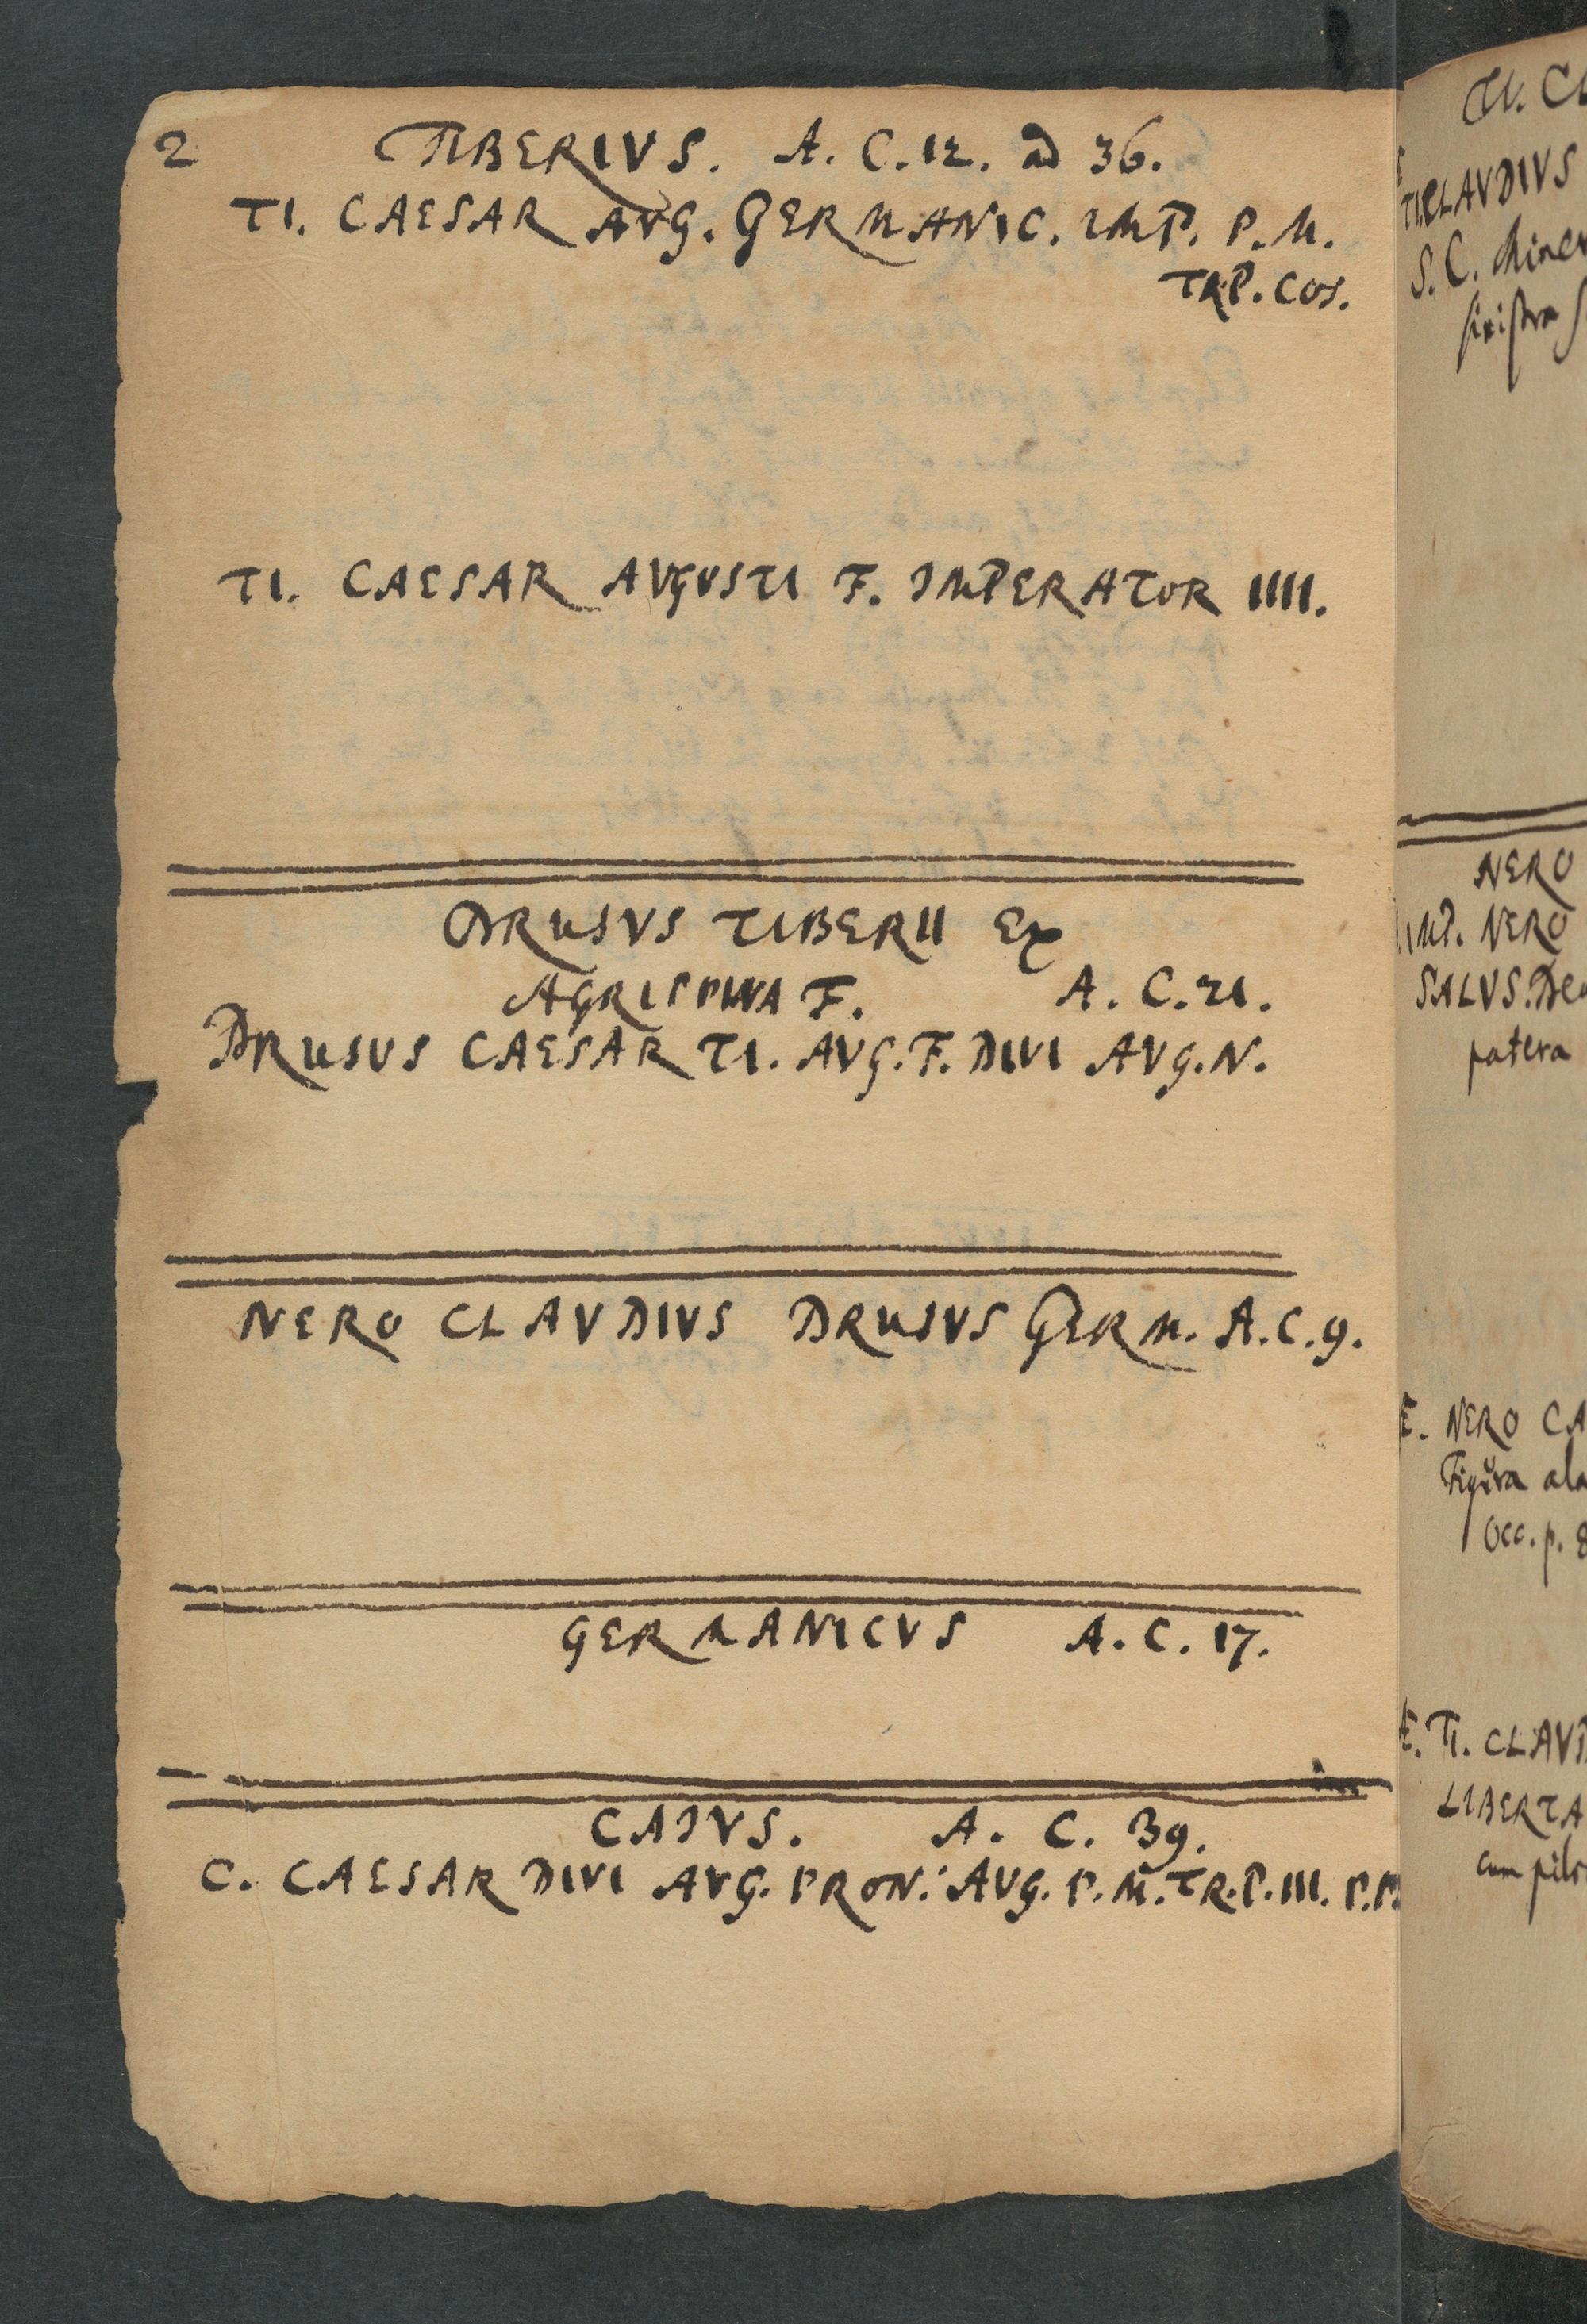 2
TIBERIVS. A. C. 12. ad 36.
TI. CAESAR AVG. GERMANIC. IMP. P. M.
TR.P. COS.
TI. CAESAR AVGVSTI F. IMPERATOR IIII.
DRUSVS TIBERII Ex
AGRIPPINA F. A. C. 21.
DRUSUS CAESAR TI. AVG. F. DIVI AVG. N.
NERO CLAVDIVS DRUSVS GERM. A. C. 9.
GERMANICVS A. C. 17.
CAIVS. A. C. 39.
C. CAESAR DIVI AVG. PRON. AVG. P. M. TR. P. III. P. P.
TI. CL
TI. CLAVDIVS
S. C. Miner
sinistra
NERO
IMP. NERO
SALVS. Dea
patera
Æ. NERO CA
Figura ala
Occ. p. 8
Æ. TI. CLAVD
LIBERTA
cum pile